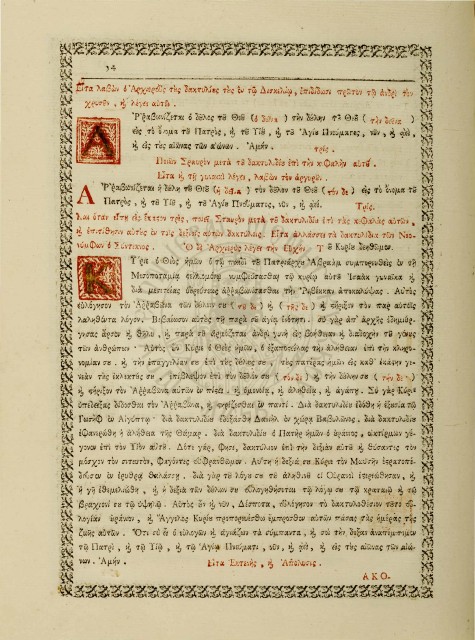 Εἶτα λαβὼν ὁ Ἀρχιερεὺς τὰς δακτυλίες τὰς ἐν τῷ Δισκελίῳ, ἐπιδίδωσι πρῶτον τῷ ἀνδρὶ τὸν
χρυσοῦν, ϗ λέγει αὐτῷ.
ἈῬῥαβωνίζεται ὁ δοῦλος τοῦ Θεοῦ (ὁ δεῖνα) τὴν δούλην τοῦ Θεοῦ (τὴν δεῖνα)
εἰς τὸ ὄνομα τοῦ Πατρὸς, ϗ τοῦ Υἱοῦ, ϗ τοῦ Ἁγίου Πνεύματος, νῦν, ϗ ἀεὶ,
ϗ εἰς τοὺς αἰῶνας τῶν αἰώνων. Ἀμήν. τρίς.
Ποιῶν Σταυρὸν μετὰ τοῦ δακτυλιδίου ἐπὶ τὴν κεφαλὴν αὐτοῦ.
Εἶτα ϗ τῇ γυναικὶ λέγει, λαβὼν τὸν ἀργυροῦν.
Ἀῤῥαβωνίζεται ἡ δούλη τοῦ Θεοῦ (ἡ δεῖνα) τὸν δοῦλον τοῦ Θεοῦ (τὸν δε) εἰς τὸ ὄνομα τοῦ
Πατρὸς, ϗ τοῦ Υἱοῦ, ϗ τοῦ Ἁγίου Πνεύματος, νῦν, ϗ ἀεί. Τρίς.
Καὶ ὅταν εἴπῃ εἰς ἕκαστον τρὶς, ποιεῖ Σταυρὸν μετὰ τοῦ δακτυλιδίου ἐπὶ τὰς κεφαλὰς αὐτῶν,
ϗ ἐπιτίθησιν αὐτὰς ἐν τοῖς δεξιοῖς αὐτῶν δακτύλοις. Εἶτα ἀλλάσσει τὰ δακτυλίδια τῶν Νεο-
νύμφων ὁ Σύντεκνος. Ὁ δὲ Ἀρχιερεὺς λέγει τὴν Εὐχήν. Τοῦ Κυρίου δεηθῶμεν.
Κύριε ὁ Θεὸς ἡμῶν ὁ τῷ παιδὶ τοῦ Πατριάρχου Ἀβραὰμ συμπορευθεὶς ἐν τῇ
Μεσοποταμίᾳ στελλομένῳ νυμφεύσασθαι τῷ κυρίῳ αὐτοῦ Ἰσαὰκ γυναῖκα ϗ
διὰ μεσιτείας ὑδρεύσεως ἀῤῥαβωνίσασθαι τὴν Ῥεβέκκαν ἀποκαλύψας. Αὐτὸς
εὐλόγησον τὸν Ἀῤῥαβῶνα τῶν δούλων σου (τοῦ δε) ϗ (τῆς δε) ϗ στήριξον τὸν παρ' αὐτοῖς
λαληθέντα λόγον. Βεβαίωσον αὐτοὺς τῇ παρὰ σοῦ ἁγίᾳ ἑνότητι. σὺ γὰρ ἀπ' ἀρχῆς ἐδημιούρ-
γησας ἄρσεν ϗ θῆλυ, ϗ παρὰ σοῦ ἁρμόζεται ἀνδρὶ γυνὴ εἰς βοήθειαν ϗ διαδοχὴν τοῦ γένους
τῶν ἀνθρώπων. Αὐτὸς οὖν Κύριε ὁ Θεὸς ἡμῶν, ὁ ἐξαποστείλας τὴν ἀλήθειαν ἐπὶ τὴν κληρο-
νομίαν σου. ϗ τὴν ἐπαγγελίαν σου ἐπὶ τοὺς δούλους σου τοὺς πατέρας ἡμῶν εἰς καθ' ἑκάστην γε-
νεὰν τοὺς ἐκλεκτούς σου, ἐπίβλεψον ἐπὶ τὸν δοῦλόν σου (τὸν δε) ϗ τὴν δούλην σου (τὴν δε)
ϗ στήριξον τὸν Ἀῤῥαβῶνα αὐτῶν ἐν πίστει, ϗ ὁμονοίᾳ, ϗ ἀληθείᾳ, ϗ ἀγάπῃ. Σὺ γὰρ Κύριε
ὑπέδειξας δίδοσθαι τὸν Ἀῤῥαβῶνα, ϗ στηρίζεσθαι ἐν παντί. Διὰ δακτυλιδίου ἐδόθη ἡ ἐξουσία τῷ
Ἰωσὴφ ἐν Αἰγύπτῳ. διὰ δακτυλιδίου ἐδοξάσθη Δανιὴλ ἐν χώρᾳ Βαβυλῶνος. διὰ δακτυλιδίου
ἐφανερώθη ἡ ἀλήθεια τῆς Θάμαρ. διὰ δακτυλιδίου ὁ Πατὴρ ἡμῶν ὁ οὐράνιος, οἰκτίρμων γέ-
γονεν ἐπὶ τὸν Υἱὸν αὐτοῦ. Δότε γὰρ, φησὶ, δακτύλιον ἐπὶ τὴν δεξιὰν αὐτοῦ ϗ θύσαντες τὸν
μόσχον τὸν σιτευτὸν, φαγόντες εὐφρανθῶμεν. Αὕτη ἡ δεξιά σου Κύριε τὸν Μωσῆν ἐστρατοπέ-
δευσεν ἐν ἐρυθρᾷ θαλάσσῃ. διὰ γὰρ τοῦ λόγου σου τοῦ ἀληθινοῦ οἱ Οὐρανοὶ ἐστερεώθησαν, ϗ
ἡ γῆ ἐθεμελιώθη, ϗ ἡ δεξιὰ τῶν δούλων σου εὐλογηθήσεται τῷ λόγῳ σου τῷ κραταιῷ ϗ τῷ
βραχίονί σου τῷ ὑψηλῷ. Αὐτὸς οὖν ϗ νῦν, Δέσποτα, εὐλόγησον τὸ δακτυλοθέσιον τοῦτο εὐ-
λογίαν οὐράνιον, ϗ Ἄγγελος Κυρίου προπορευέσθω ἔμπροσθεν αὐτῶν πάσας τὰς ἡμέρας τῆς
ζωῆς αὐτῶν. Ὅτι σὺ εἶ ὁ εὐλογῶν ϗ ἁγιάζων τὰ σύμπαντα, ϗ σοὶ τὴν δόξαν ἀναπέμπομεν
τῷ Πατρὶ, ϗ τῷ Υἱῷ, ϗ τῷ Ἁγίῳ Πνεύματι, νῦν, ϗ ἀεὶ, ϗ εἰς τοὺς αἰῶνας τῶν αἰώ-
νων. Ἀμήν. Εἶτα Ἐκτενὴς, ϗ Ἀπόλυσις.
ΑΚΟ-